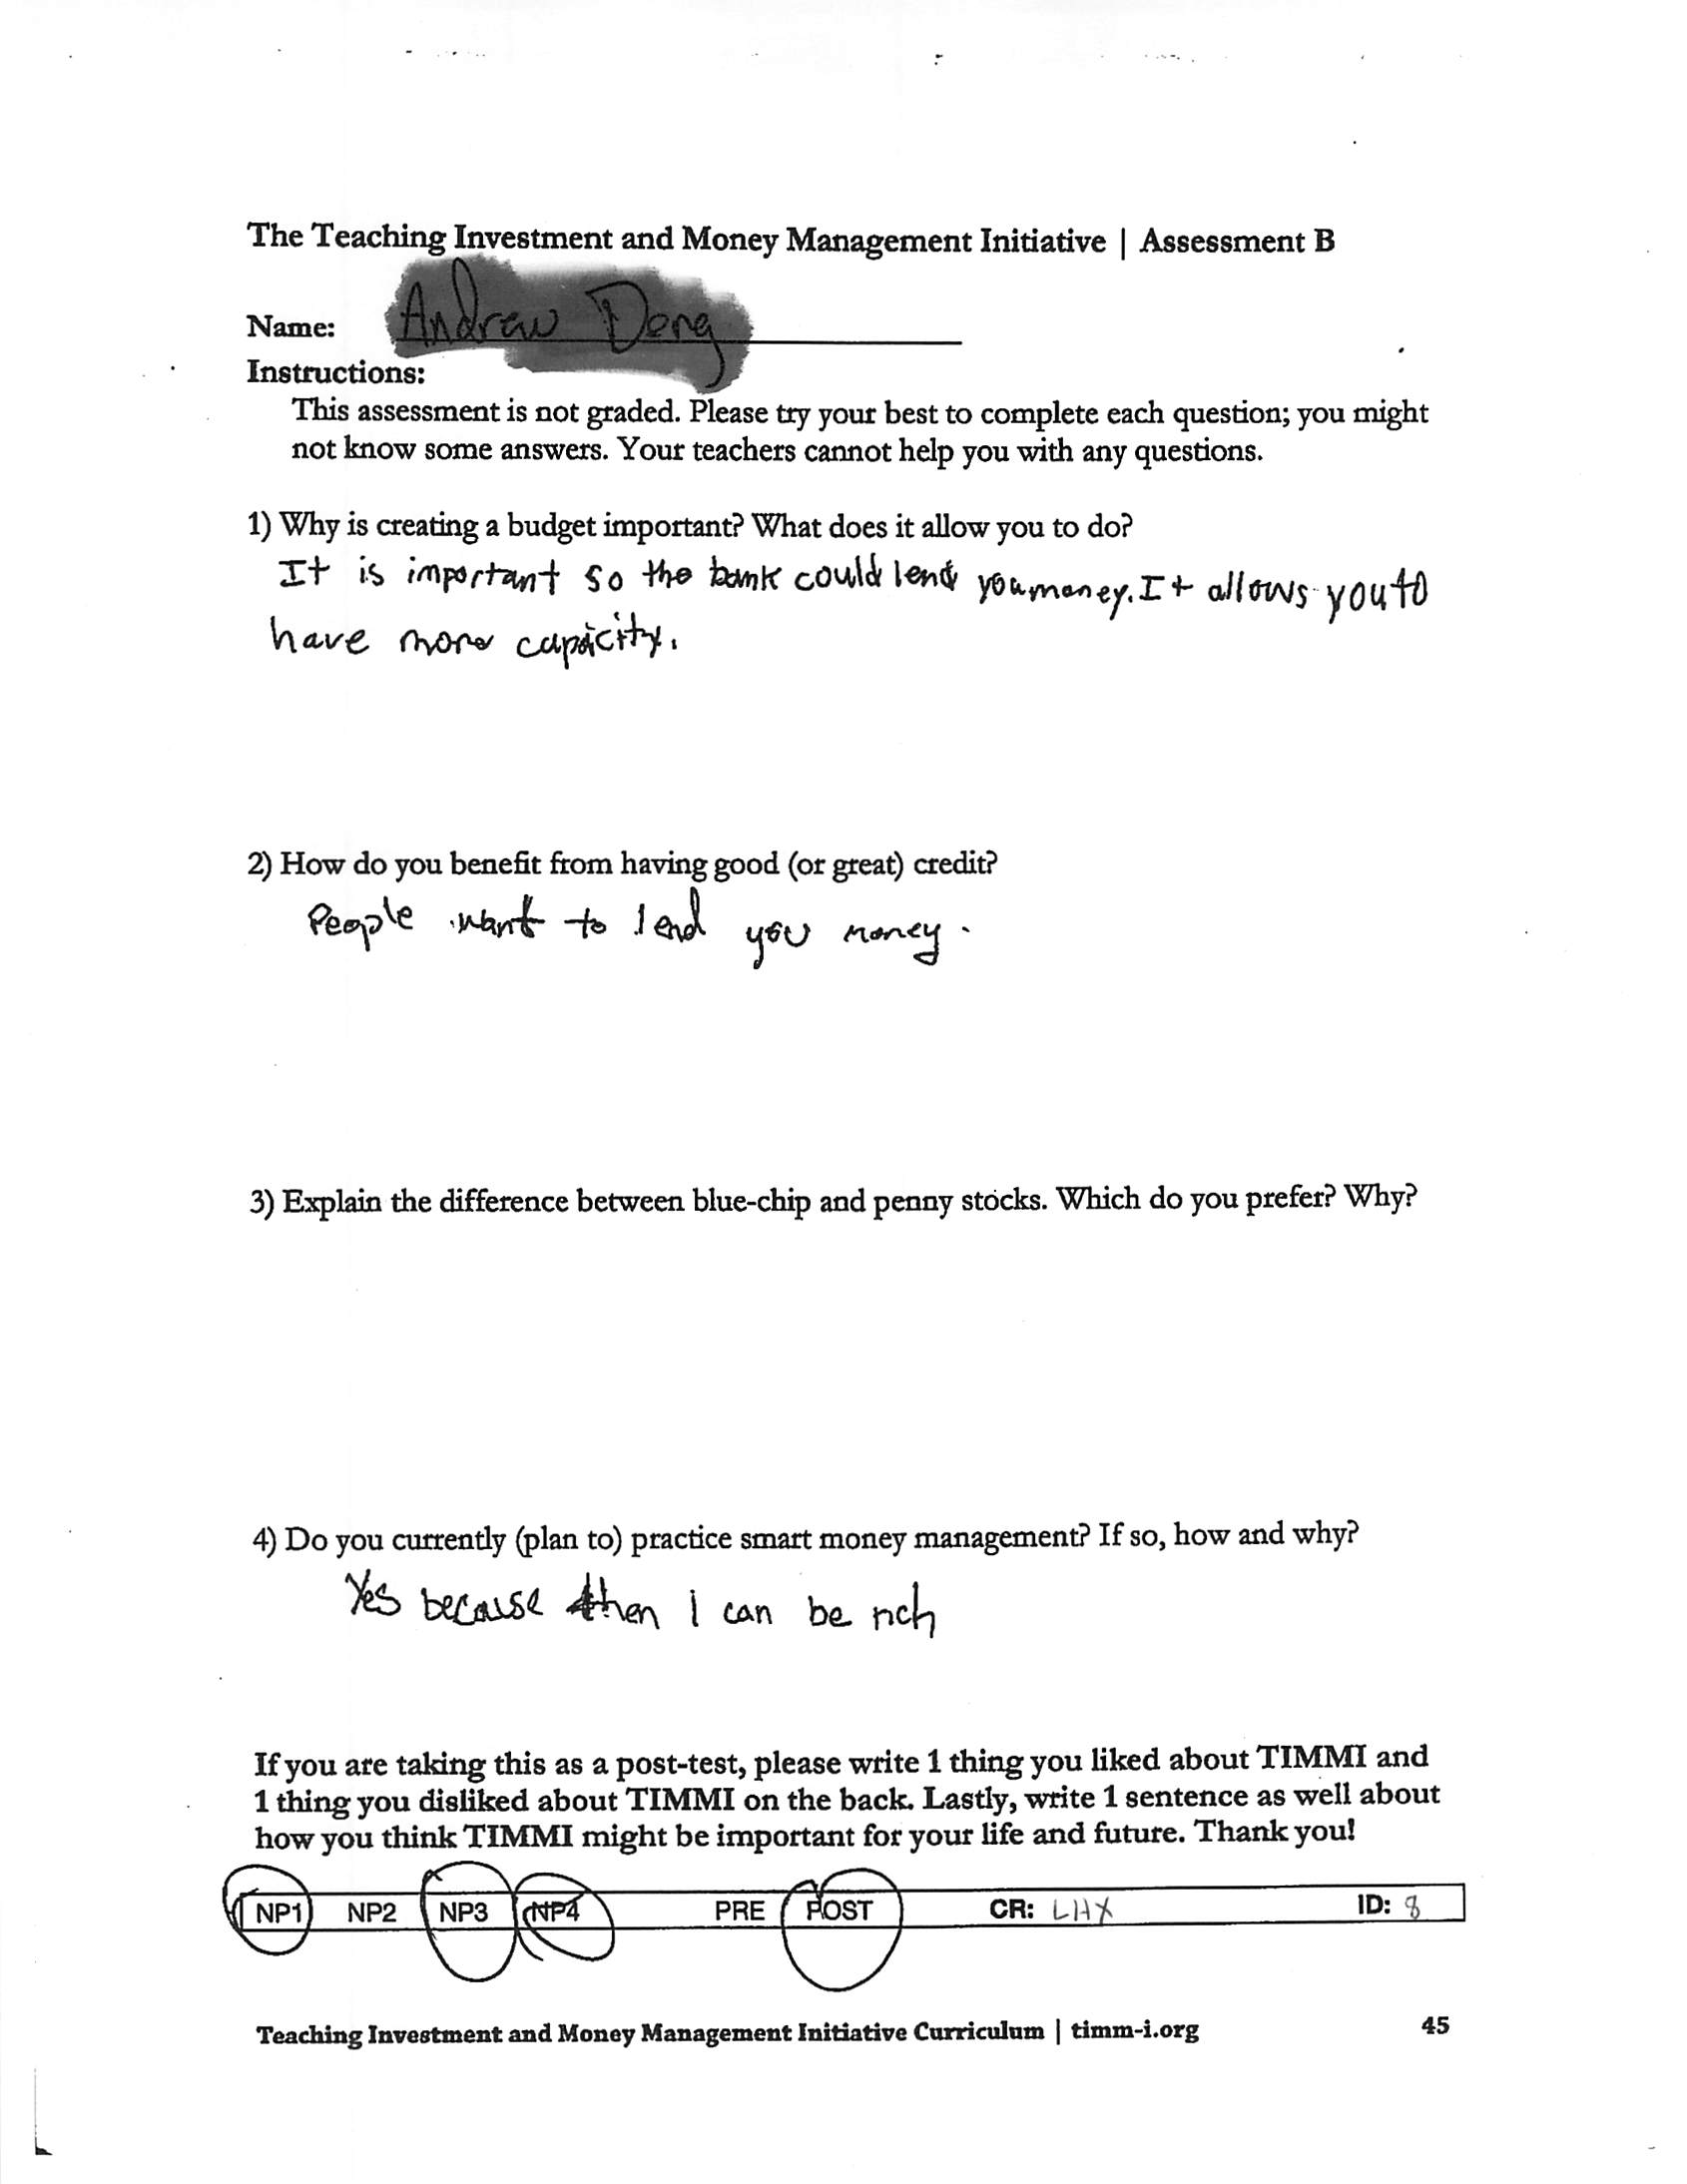 The Teaching Investment and Money Management Initiative | Assessment B
Name: Andrew Deng
Instructions:
This assessment is not graded. Please try your best to complete each question; you might
not know some answers. Your teachers cannot help you with any questions.
1) Why is creating a budget important? What does it allow you to do?
It is important so the bank could lend you money. It allows you to
have more capicity.
2) How do you benefit from having good (or great) credit?
People want to lend you money.
3) Explain the difference between blue-chip and penny stocks. Which do you prefer? Why?
4) Do you currently (plan to) practice smart money management? If so, how and why?
Yes because then I can be rich
If you are taking this as a post-test, please write 1 thing you liked about TIMMI and
1 thing you disliked about TIMMI on the back. Lastly, write 1 sentence as well about
how you think TIMMI might be important for your life and future. Thank you!
NP1 NP2 NP3 NP4 PRE POST CR: LHX ID: 8
Teaching Investment and Money Management Initiative Curriculum | timm-i.org 45